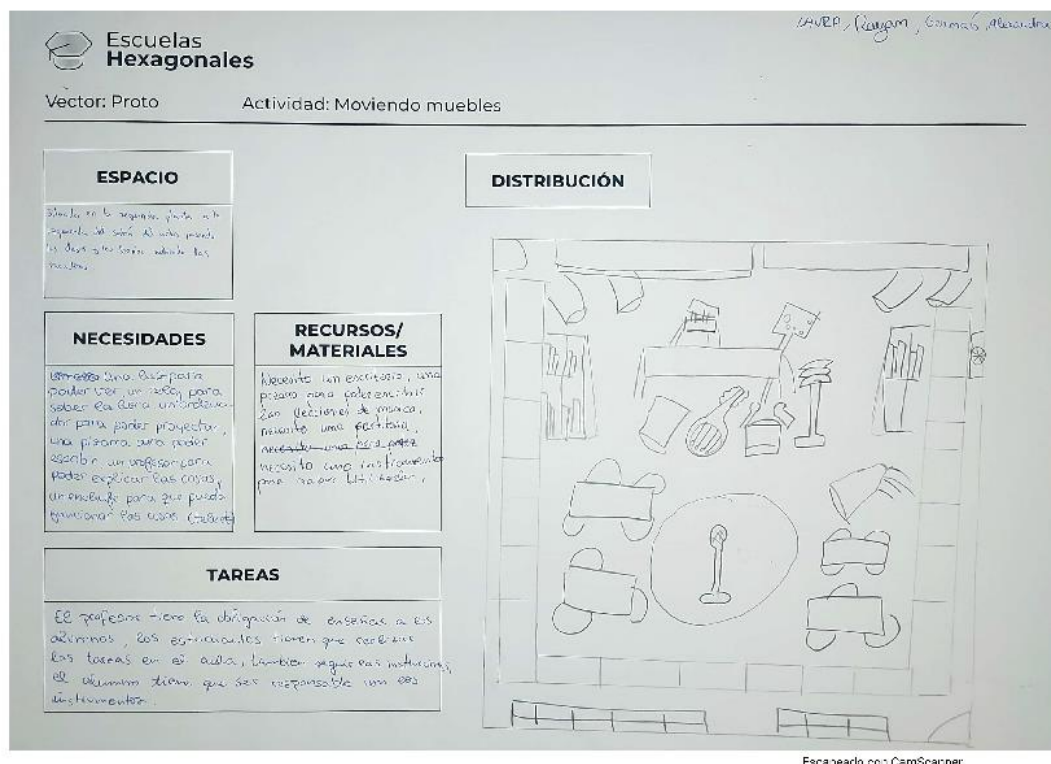 LAURA, Rayan, Germán, Alexandra
Escuelas
Hexagonales
Vector: Proto Actividad: Moviendo muebles
ESPACIO
en la segunda planta a la
del salón de actos
las
NECESIDADES
una luz para
poder ver, un reloj para
saber la hora un ordena
dor para poder proyectar,
una pizarra para poder
escribir un profesor para
poder explicar las cosas,
un enchufe para que pueda
funcionar las cosas
RECURSOS/
MATERIALES
Necesito un escritorio, una
pizarra para poder escribir
las lecciones de musica,
necesito una partitura,
necesito una para poder
necesito unos instrumentos
para
TAREAS
El profesor tiene la obligación de enseñar a los
alumnos, los estudiantes tienen que realizar
las tareas en el aula, también seguir las instrucciones,
el alumno tiene que ser responsable con los
instrumentos.
DISTRIBUCIÓN
Escaneado con CamScanner